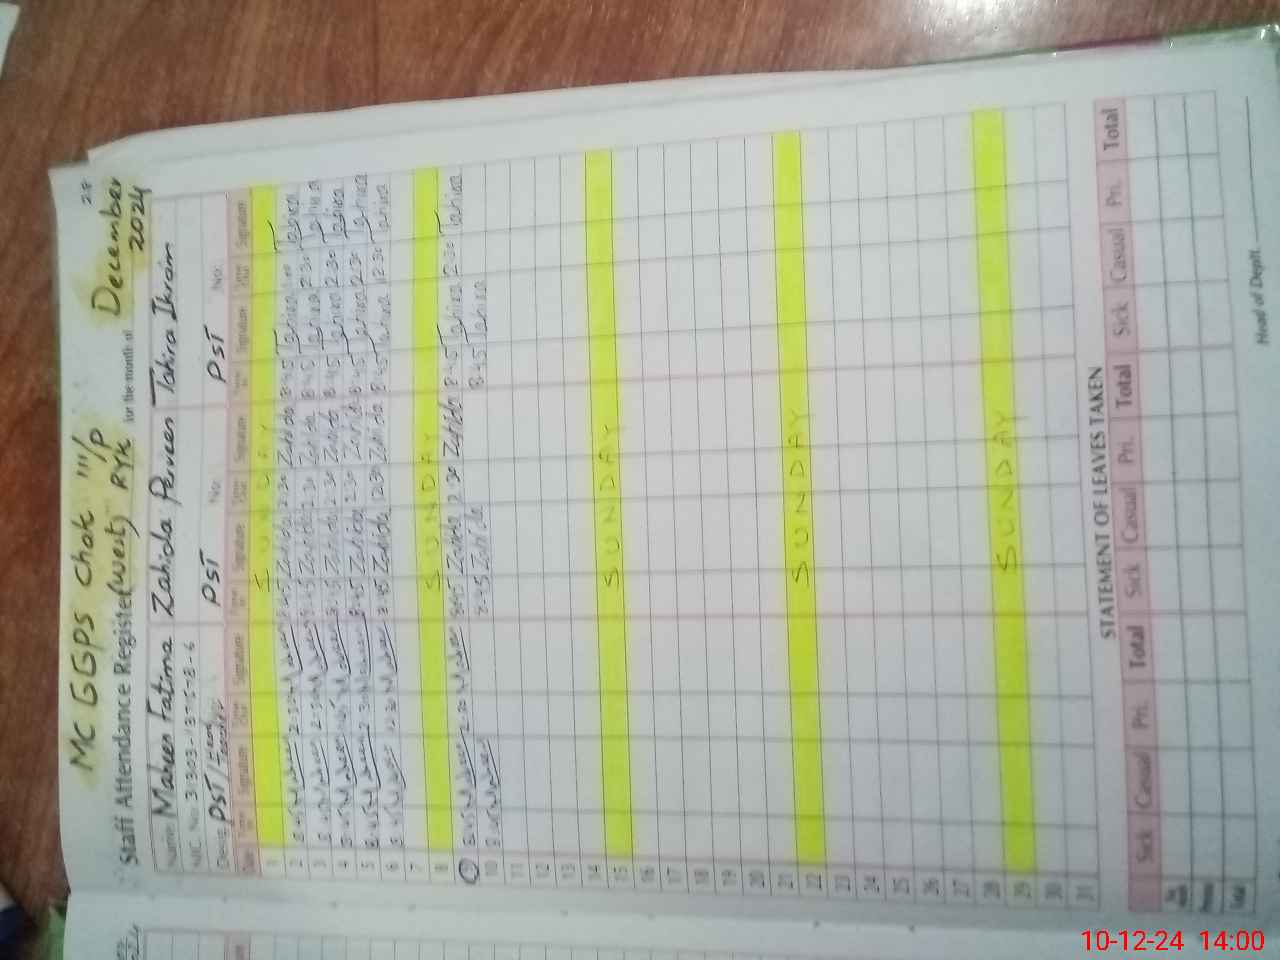 28
MC GGPS Chak 111/P
Staff Attendance Register (West) RYK for the month of December 2024
Name: Maheen Fatima Zahida Perveen Tahira Ikram
NIC. No:
Desig: PST / Head Teacher PST No: PST No:
Date Time In Signature Time Out Signature Time In Signature Time Out Signature Time In Signature Time Out Signature
1 SUNDAY
2 8:45 Maheen 2:30 Maheen 8:45 Zahida 2:30 Zahida 8:45 Tahira Tahira
3 8:45 Maheen 2:30 Maheen 8:45 Zahida 2:30 Zahida 8:45 Tahira 2:30 Tahira
4 8:45 Maheen Maheen 8:45 Zahida 2:30 Zahida 8:45 Tahira 2:30 Tahira
5 8:45 Maheen 2:30 Maheen 8:45 Zahida 2:30 Zahida 8:45 Tahira 2:30 Tahira
6 8:45 Maheen 12:30 Maheen 8:45 Zahida 12:30 Zahida 8:45 Tahira 12:30 Tahira
7
8 SUNDAY
9 8:45 Maheen 2:30 Maheen 8:45 Zahida 2:30 Zahida 8:45 Tahira 2:30 Tahira
10 8:45 Maheen 8:45 Zahida 8:45 Tahira
11
12
13
14
15 SUNDAY
16
17
18
19
20
21
22 SUNDAY
23
24
25
26
27
28
29 SUNDAY
30
31
STATEMENT OF LEAVES TAKEN
Sick Casual Pri. Total Sick Casual Pri. Total Sick Casual Pri. Total
Total
Head of Deptt.
10-12-24 14:00